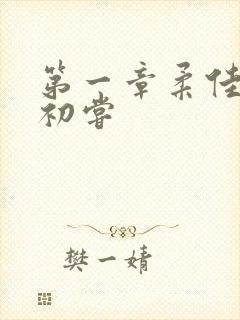 第一章柔佳
初嘗
樊一婧